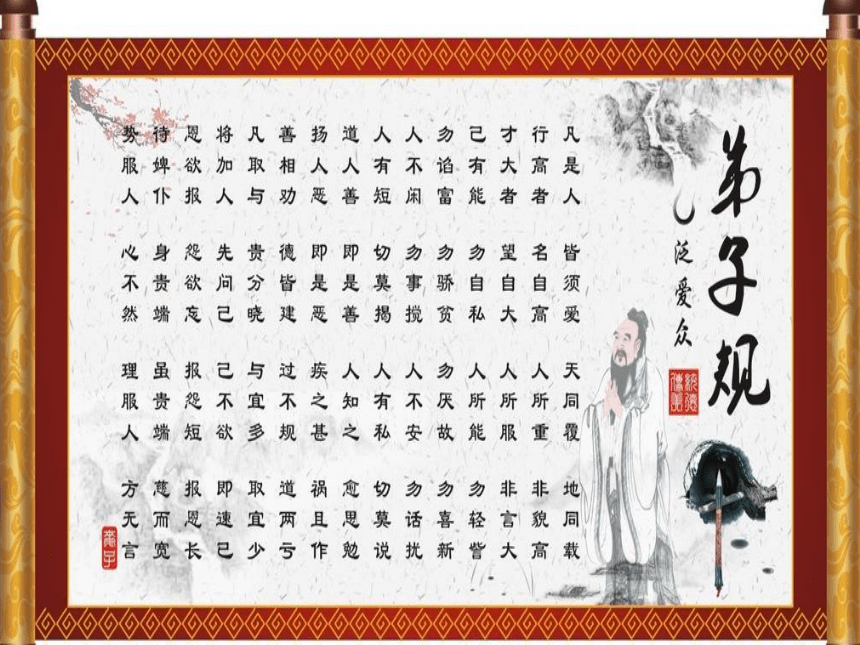 弟子规
泛爱众
凡是人 皆须爱 天同覆 地同载
行高者 名自高 人所重 非貌高
才大者 望自大 人所服 非言大
己有能 勿自私 人所能 勿轻訾
勿谄富 勿骄贫 勿厌故 勿喜新
人不闲 勿事搅 人不安 勿话扰
人有短 切莫揭 人有私 切莫说
道人善 即是善 人知之 愈思勉
扬人恶 即是恶 疾之甚 祸且作
善相劝 德皆建 过不规 道两亏
凡取与 贵分晓 与宜多 取宜少
将加人 先问己 己不欲 即速己
恩欲报 怨欲忘 报怨短 报恩长
待婢仆 身贵端 虽贵端 慈而宽
势服人 心不然 理服人 方无言